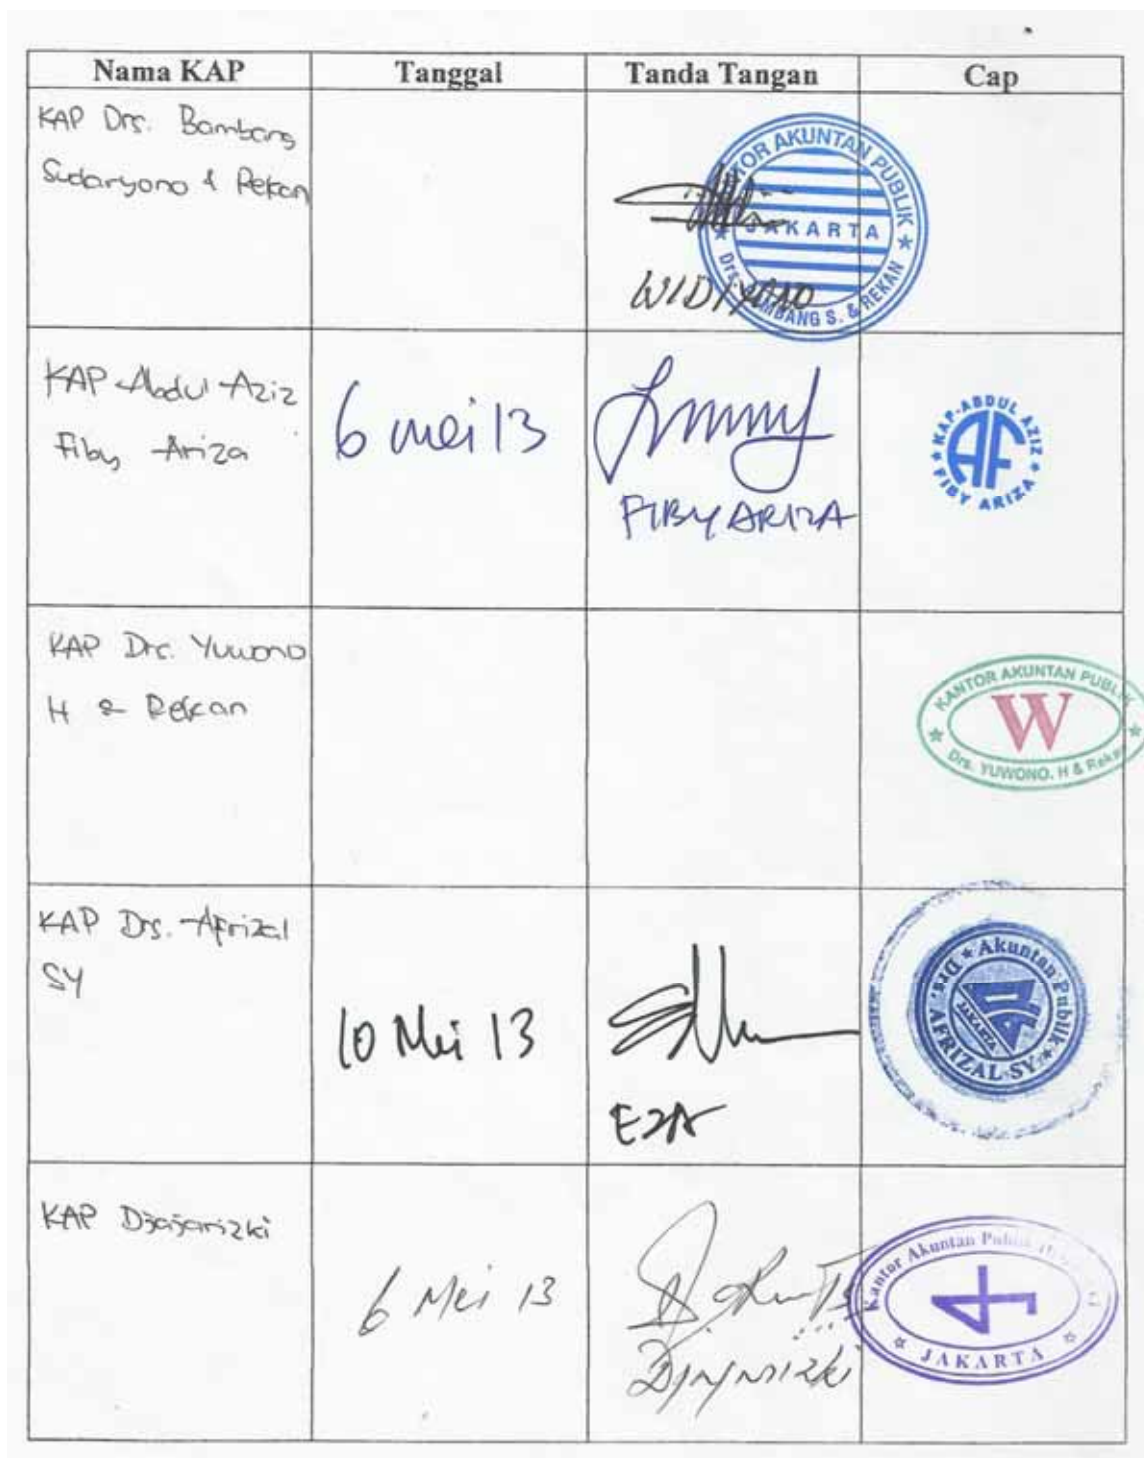 Nama KAP Tanggal Tanda Tangan Cap
KAP Drs. Bambang
Sudaryono & Rekan
KANTOR AKUNTAN PUBLIK
JAKARTA
Drs. BAMBANG S. & REKAN
WIDIYANO
KAP Abdul Aziz
Fiby Ariza
6 mei 13
FIBY ARIZA
KAP-ABDUL AZIZ
AF
FIBY ARIZA
KAP Drs. Yuwono
H & Rekan
KANTOR AKUNTAN PUBLIK
W
Drs. YUWONO. H & Rekan
KAP Drs. Afrizal
SY
10 Mei 13
EZA
Akuntan Publik
JAKARTA
Drs. AFRIZAL SY
KAP Djajarizki
6 Mei 13
Djajarizki
Kantor Akuntan Publik
JAKARTA